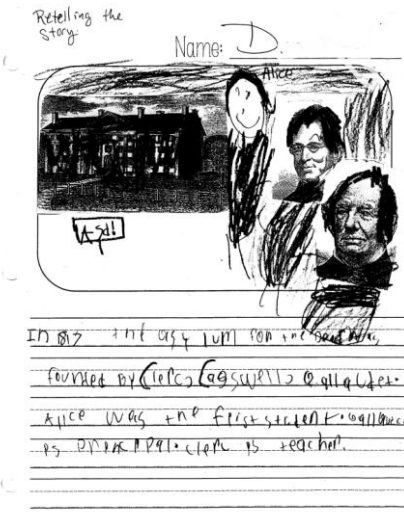 Retelling the
Story
Name: D.
Alice
Asd!
In 817 the asylum for the Deaf was
founded by Clerc, Cogswell, Gallaudet.
Alice was the feirst student. Gallaudet
is principal. Clerc is teacher.